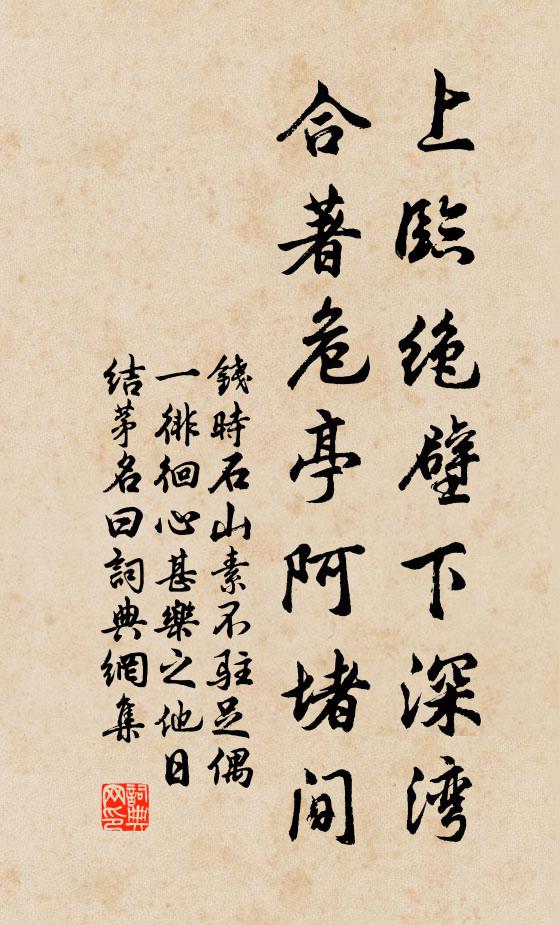 上臨絶壁下深湾
合著危亭阿堵間
錢時石山素不駐足偶
一徘徊心甚樂之他日
結茅名曰詞典網集
詞典網印